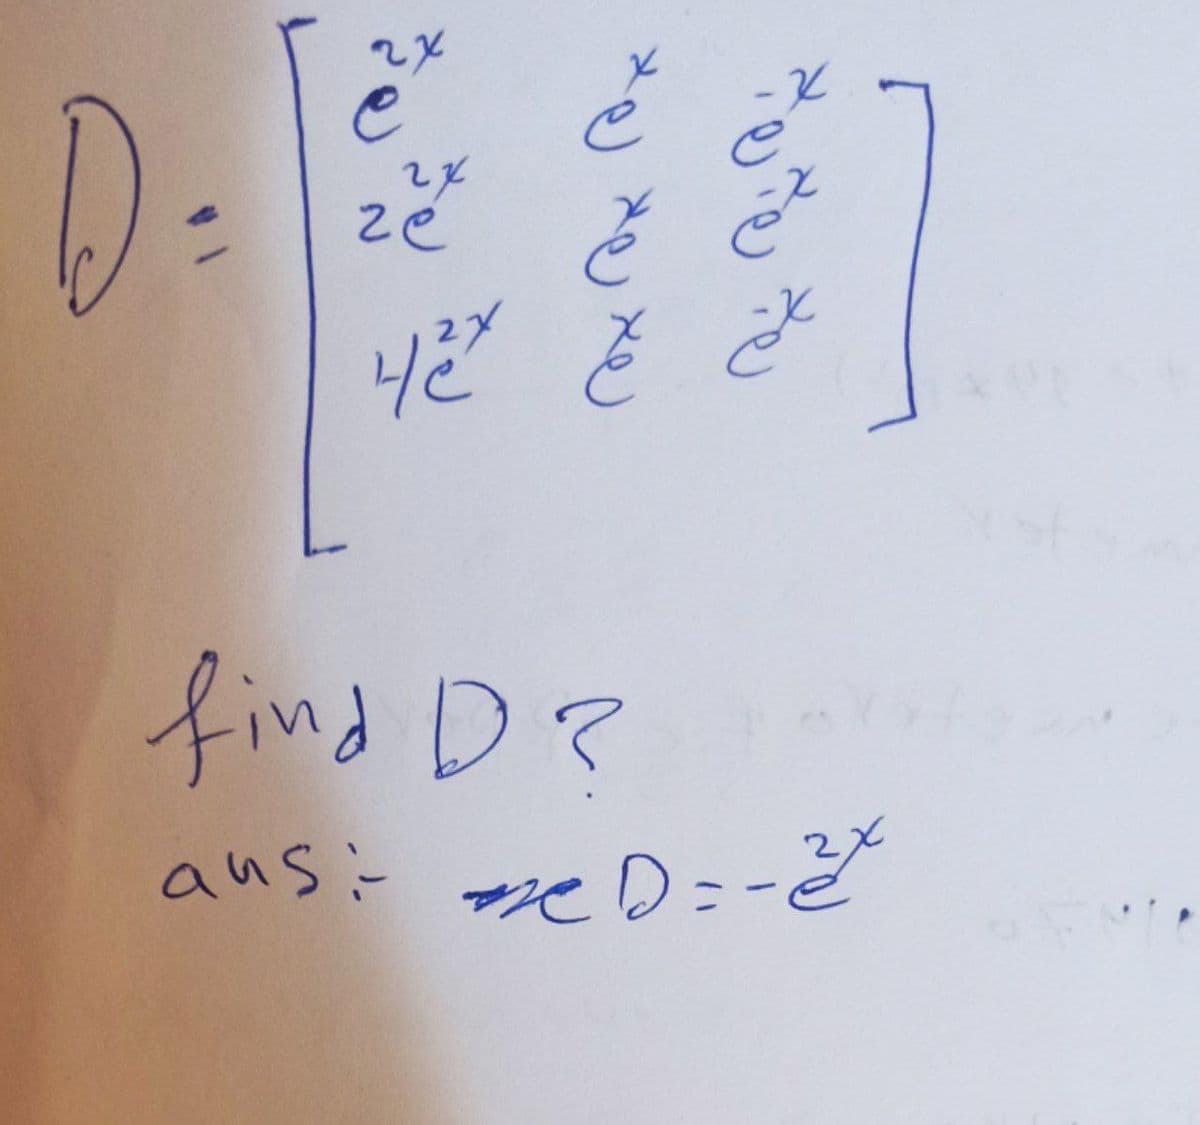 D = [ e^2x e^x e^-x
2e^2x e^x e^-x
4e^2x e^x e^-x ]
find D?
ans:- D = -e^2x